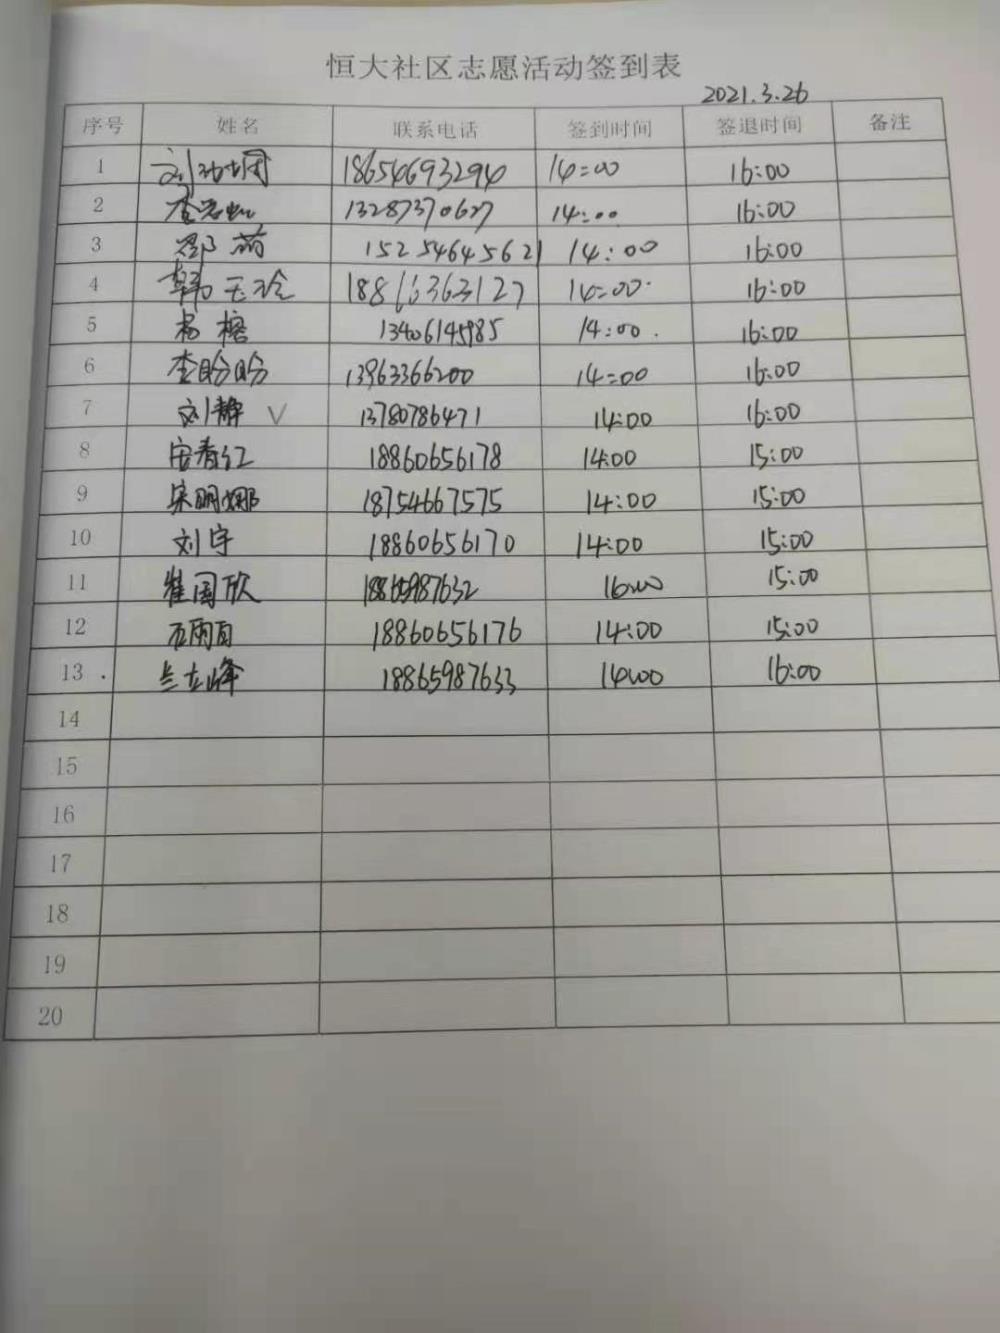 恒大社区志愿活动签到表
2021.3.26
序号 姓名 联系电话 签到时间 签退时间 备注
1 刘 18654693294 14:00 16:00
2 李 13287370627 14:00 16:00
3 邵 萌 15254645621 14:00 16:00
4 韩玉玲 18816363127 14:00 16:00
5 杨 榕 13406145985 14:00 16:00
6 李盼盼 13963366200 14:00 16:00
7 刘静 V 13780786471 14:00 16:00
8 安春红 18860656178 14:00 15:00
9 宋明娜 18754667575 14:00 15:00
10 刘宇 18860656170 14:00 15:00
11 崔国欣 18865987632 16:00 15:00
12 石雨 18860656176 14:00 15:00
13 兰立峰 18865987633 14:00 16:00
14
15
16
17
18
19
20